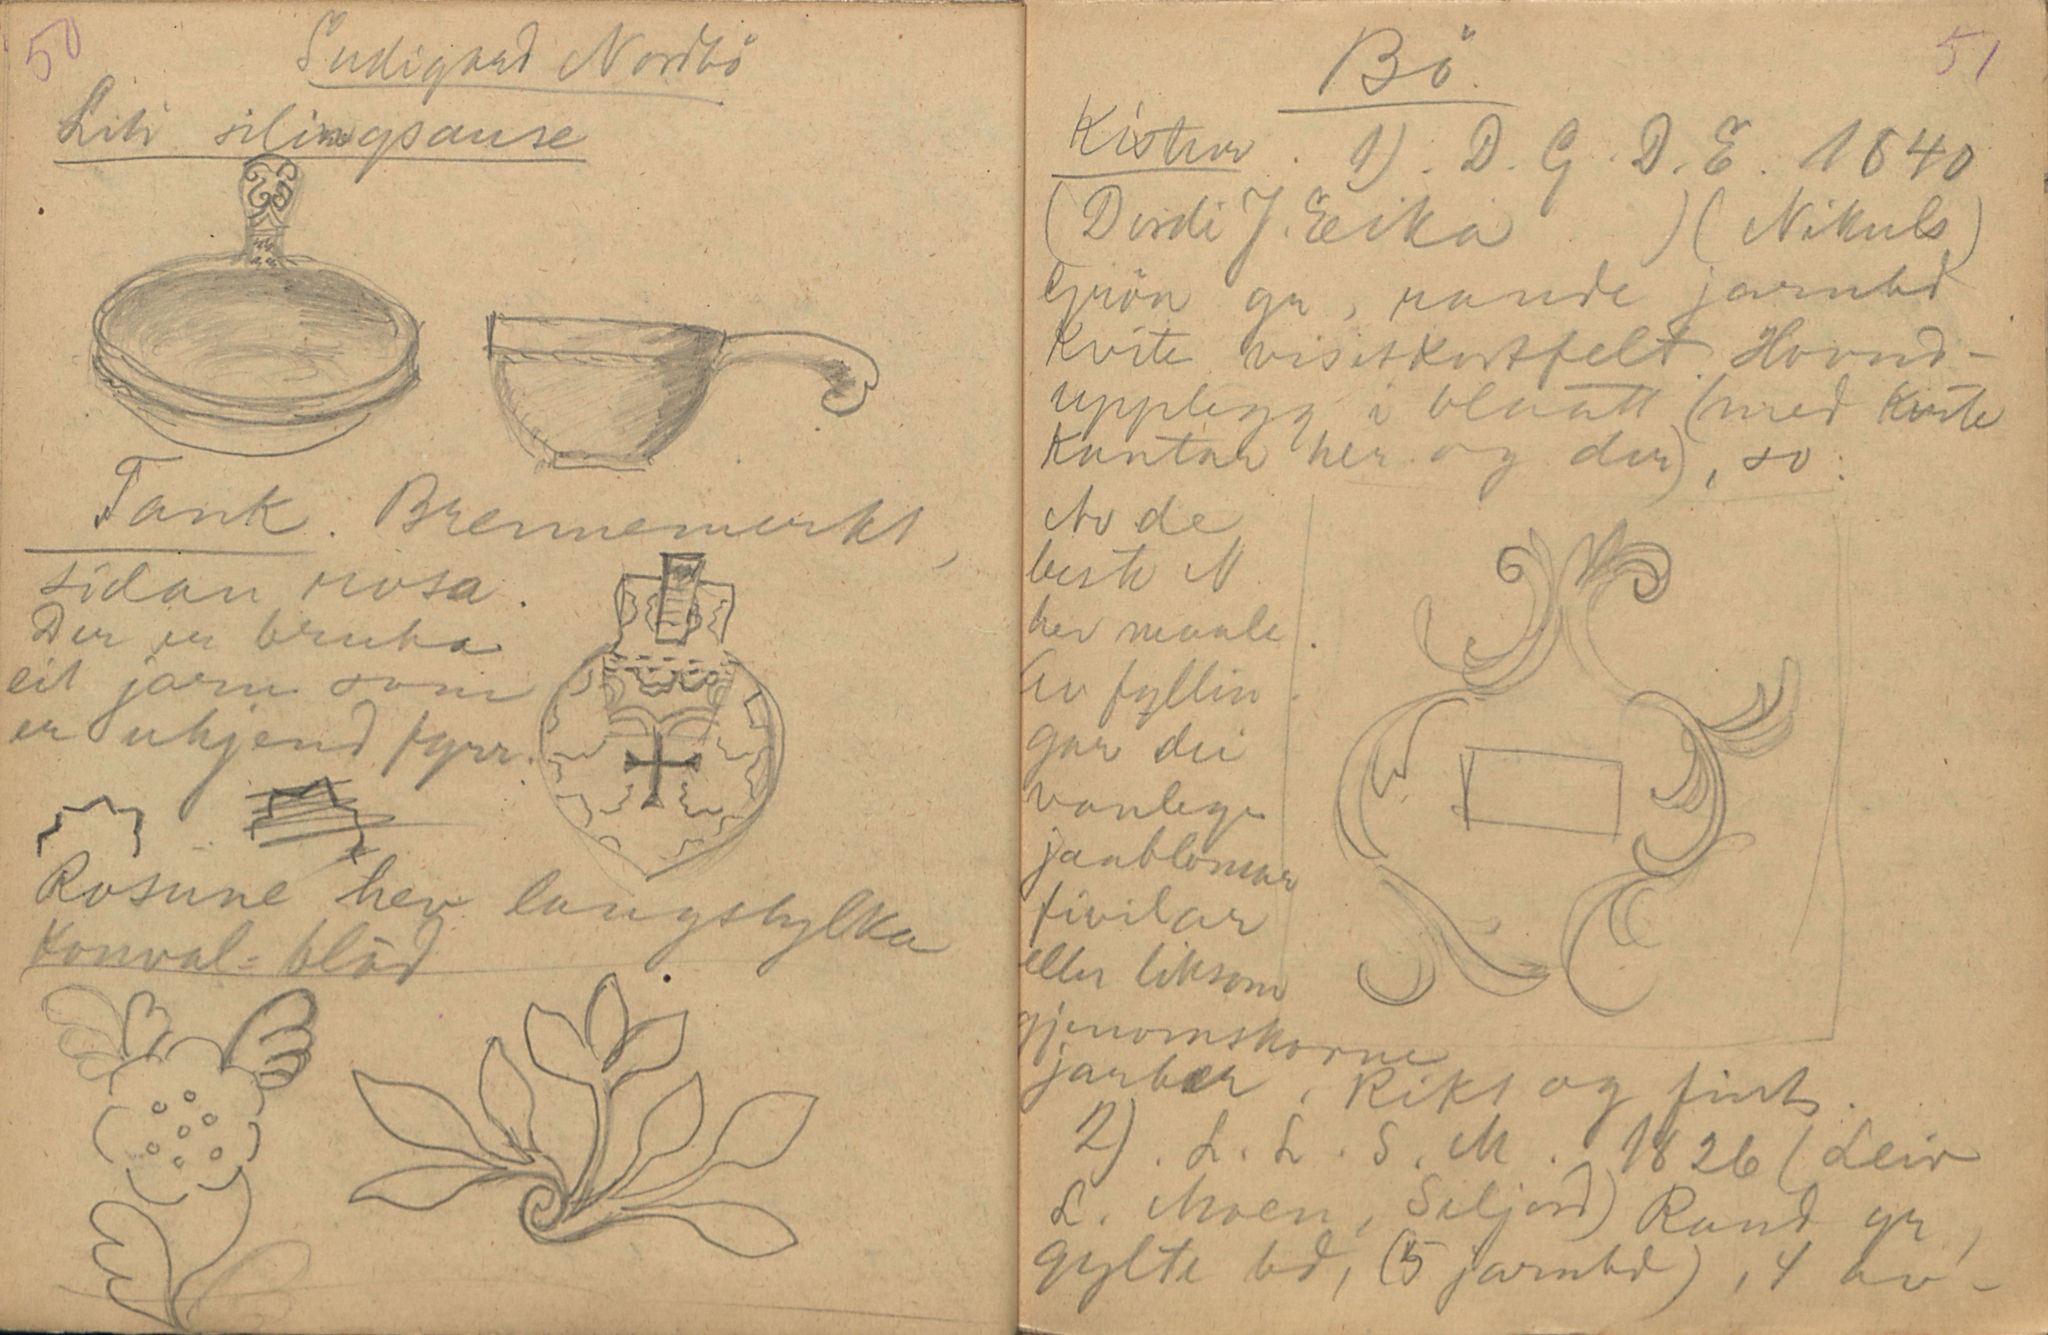 50
Sudigard Nordbö
Liti silingsause
Tank. Brennemerkt,
sidan rosa.
Der er bruka
eit jarn som
er ukjend fyrr.
Rosune hev langstylka
Konval-blöd
51
Bö.
Kistur. 1). D. G. D. E. 1840
(Dordi J. Eika ) (Nikuls)
Grön gr, raude jarnbd
Kvite visitkortfelt. Hovud-
upplegg i blaatt (med kvite
Kantar her og der), so:
Av de
beste N
hev maala.
Av fyllin
gar dei
vanlege
jaablomar
fivilar
eller liksom
gjenomskorne
jarber. Rikt og fint.
2). L. L. S. M. 1826 (Leiv
L. Moen, Seljord) Raud gr,
gylte bd, (5 jarnbd), 4 av-